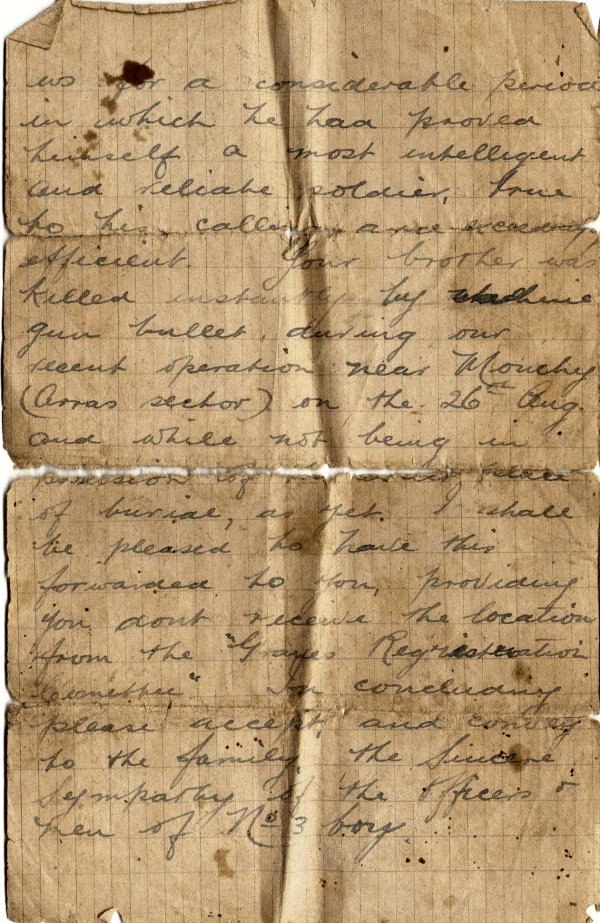 us for a considerable period
in which he had proved
himself a most intelligent
and reliate soldier, true
to his calling, and
efficient. Your brother was
killed instantly by machine
gun bullet, during our
recent operation near Monchy
(Arras sector) on the 26th Aug.
and while not being in
possession of place
of burial, as yet. I shall
be pleased to have this
forwarded to you, providing
you dont receive the location
from the "Graves Registration
Committee" In concluding
please accept, and convey
to the family the Sincere
sympathy of the officers &
men of No 3 Coy.